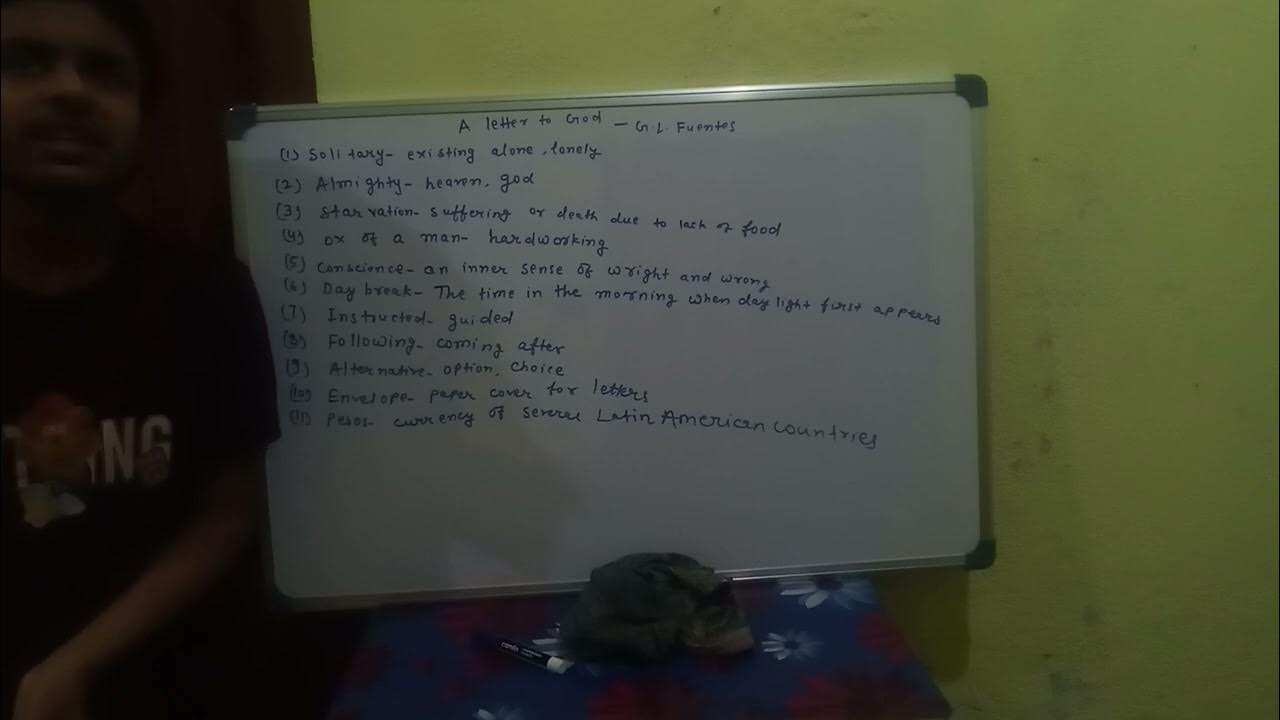 A letter to God – G.L. Fuentes
(1) Solitary- existing alone, lonely
(2) Almighty- heaven, god
(3) Starvation- suffering or death due to lack of food
(4) ox of a man- hardworking
(5) Conscience- an inner sense of wright and wrong
(6) Day break- The time in the morning when day light first appears
(7) Instructed- guided
(8) Following- coming after
(9) Alternative- option, choice
(10) Envelope- paper cover for letters
(11) Pesos- currency of Latin American countries
NG